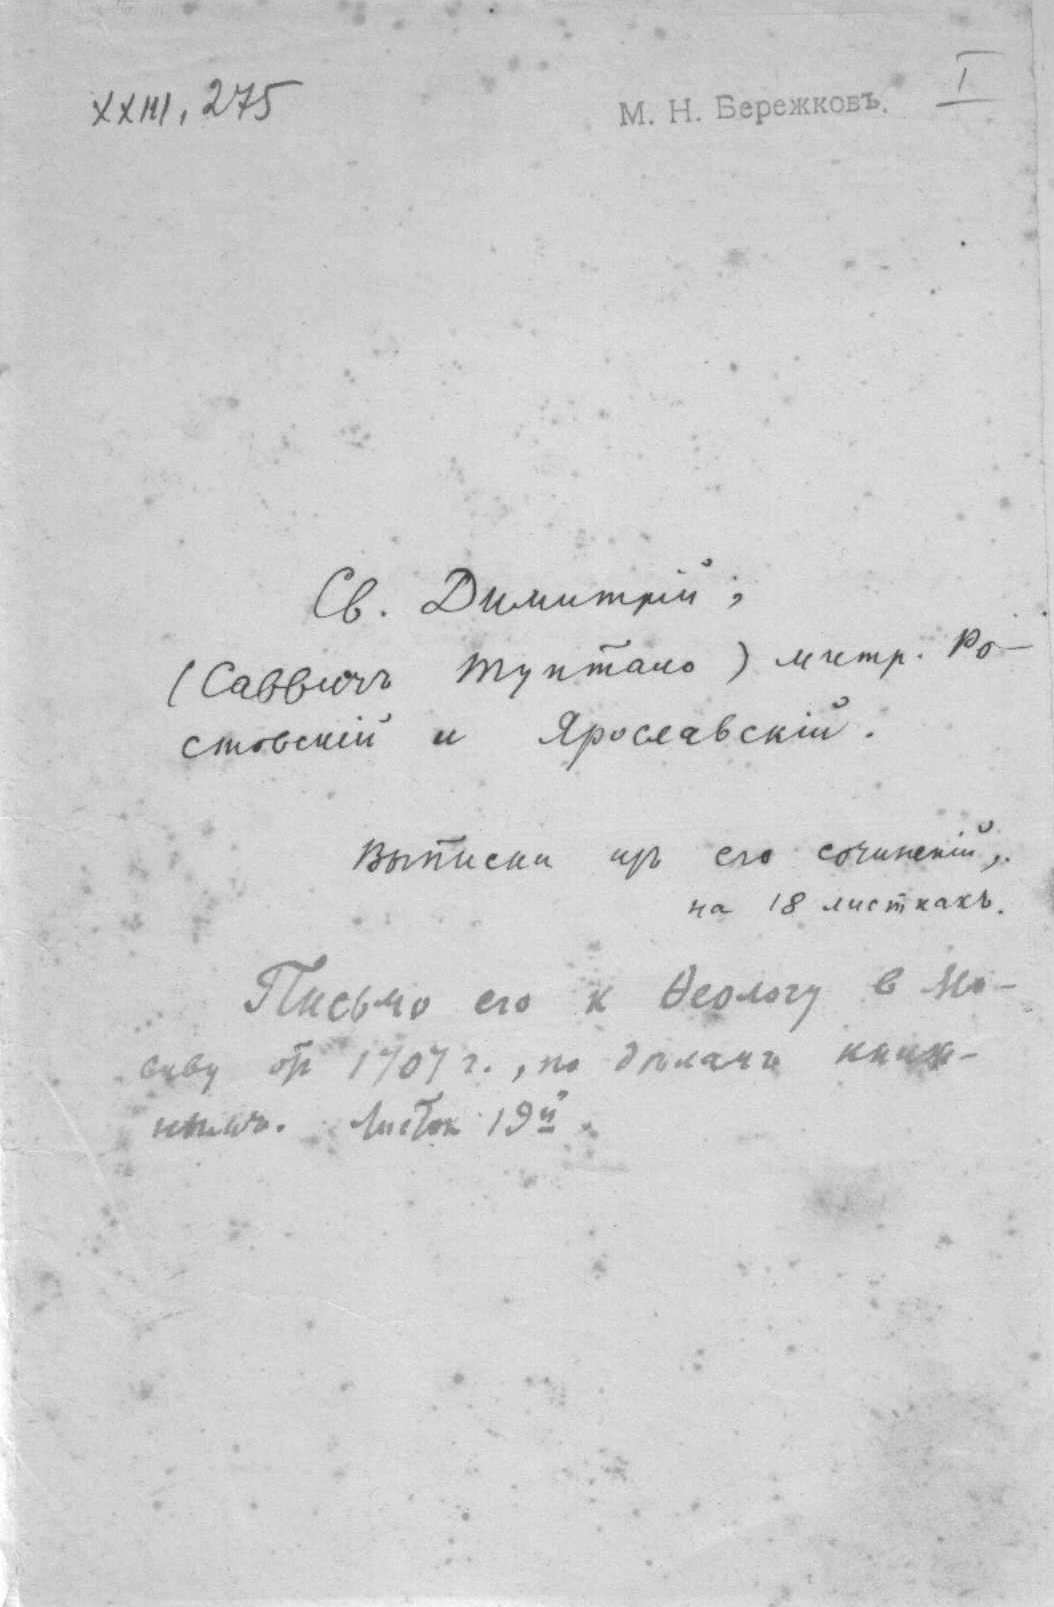 XXIII, 275
М. Н. Бережковъ.
I
Св. Димитрій;
(Саввичъ Туптало) митр. Ро-
стовскій и Ярославскій.
Выписки изъ его сочиненій,
на 18 листкахъ.
Письмо его к Ѳеологу в Мо-
скву от 1707 г., по дѣламъ книж-
нымъ. Листок 19й.